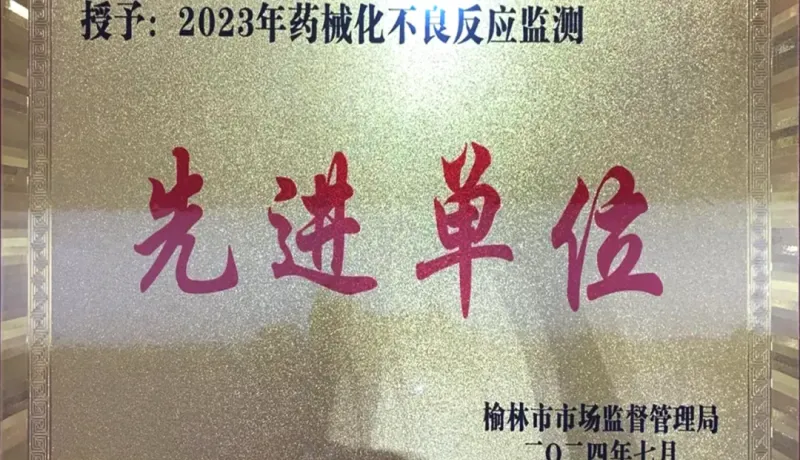 授予：2023年药械化不良反应监测
先进单位
榆林市市场监督管理局
二〇二四年七月